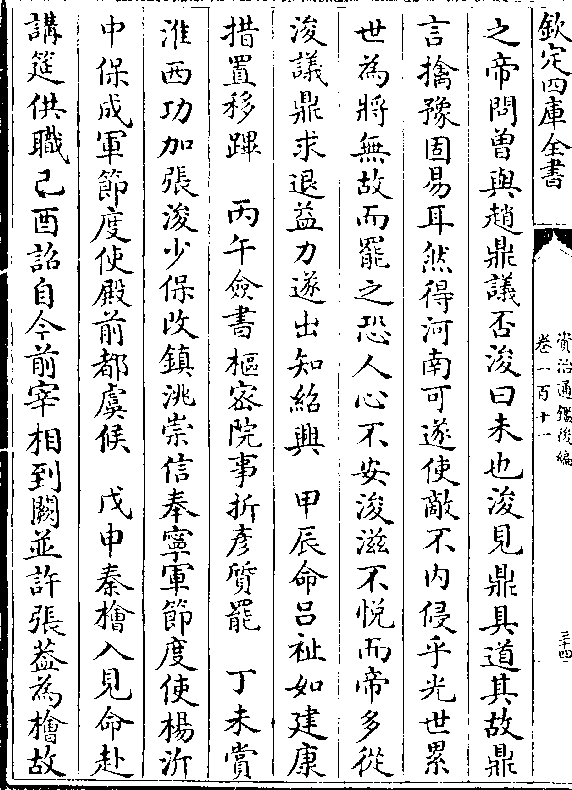 欽定四庫全書
資治通鑑後編
卷一百十一
三十四
之帝問曽與趙鼎議否浚曰未也浚見鼎具道其故鼎
言擒豫固易耳然得河南可遂使敵不内侵乎光世累
世為將無故而罷之恐人心不安浚滋不悦而帝多從
浚議鼎求退益力遂出知紹興　甲辰命吕祉如建康
措置移蹕　丙午僉書樞宻院事折彦質罷　丁未賞
淮西功加張浚少保改鎮洮崇信奉寧軍節度使楊沂
中保成軍節度使殿前都虞候　戊申秦檜入見命赴
講筵供職己酉詔自今前宰相到闕並許張葢為檜故